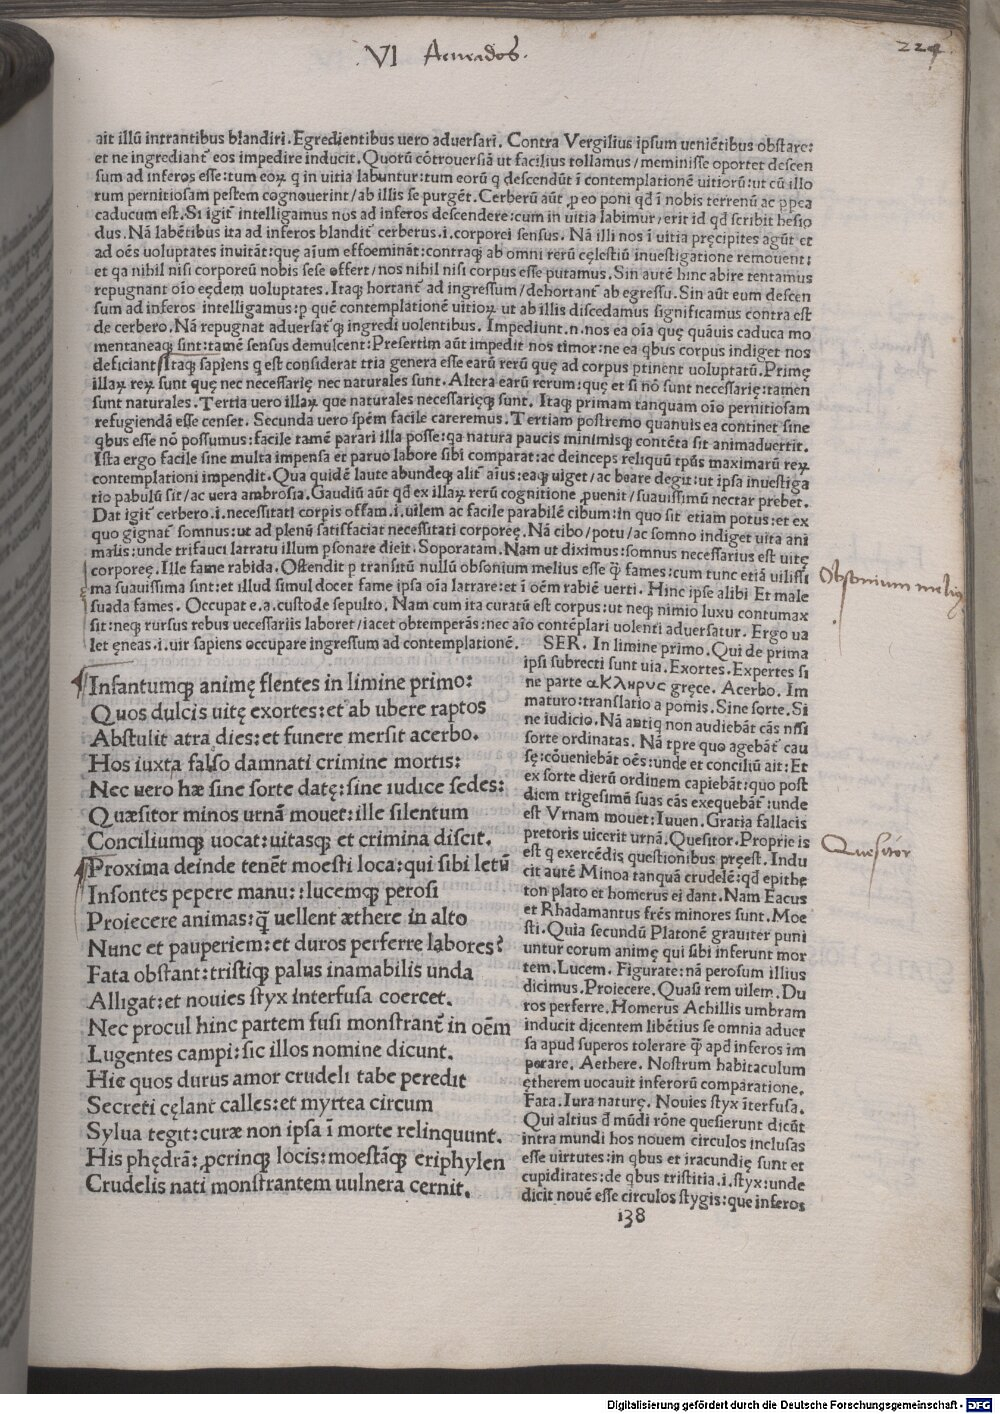 VI Aeneados.
224
ait illū intrantibus blandiri. Egredientibus uero aduersari. Contra Vergilius ipsum ueniētibus obstare:
et ne ingrediant᷑ eos impedire inducit. Quorū cōtrouersiā ut facilius tollamus/meminisse oportet descen
sum ad inferos esse: tum eoꝝ q in uitia labuntur: tum eorū q descendūt ī contemplationē uitiorū: ut cū illo
rum pernitiosam pestem cognouerint/ab illis se purgēt. Cerberū aūt ꝓ eo poni qđ ī nobis terrenū ac ppea
caducum est. Si igit᷑ intelligamus nos ad inferos descendere: cum in uitia labimur/erit id qđ scribit hesio
dus. Nā labētibus ita ad inferos blandit᷑ cerberus .i. corporei sensus. Nā illi nos ī uitia pręcipites agūt et
ad oēs uoluptates inuitāt: quę aīum effoemināt: contraqꝫ ab omni rerū cęlestiū inuestigatione remouent:
et qa nihil nisi corporeū nobis sese offert/nos nihil nisi corpus esse putamus. Sin autē hinc abire tentamus
repugnant oīo eędem uoluptates. Itaqꝫ hortant᷑ ad ingressum/dehortant᷑ ab egressu. Sin aūt eum descen
sum ad inferos intelligamus: p quē contemplationē uitioꝝ ut ab illis discedamus significamus contra est
de cerbero. Nā repugnat aduersat᷑qꝫ ingredi uolentibus. Impediunt .n. nos ea oīa quę quāuis caduca mo
mentaneaqꝫ sint: tamē sensus demulcent: Presertim aūt impedit nos timor: ne ea qbus corpus indiget nos
deficiant Itaqꝫ sapiens q est considerat tria genera esse earū rerū quę ad corpus ptinent uoluptatū. Primę
illaꝝ reꝝ sunt quę nec necessarię nec naturales sunt. Altera earū rerum: quę et si nō sunt necessarię: tamen
sunt naturales. Tertia uero illaꝝ que naturales necessarięqꝫ sunt. Itaqꝫ primam tanquam oīo pernitiosam
refugiendā esse censet. Secunda uero spēm facile careremus. Tertiam postremo quanuis ea continet sine
qbus esse nō possumus: facile tamē parari illa posse: qa natura paucis minimisqꝫ contēta sit animaduertit.
Ista ergo facile sine multa impensa et paruo labore sibi comparat: ac deinceps reliquū tp̄us maximarū reꝝ
contemplationi impendit. Qua quidē laute abundeqꝫ alit᷑ aīus: eaqꝫ uiget/ac beare degit: ut ipsa inuestiga
tio pabulū sit/ac uera ambrosia. Gaudiū aūt qđ ex illaꝝ rerū cognitione ꝓuenit/suauissimū nectar prebet.
Dat igit᷑ cerbero .i. necessitati corpis offam .i. uilem ac facile parabilē cibum: in quo sit etiam potus: et ex
quo gignat᷑ somnus: ut ad plenū satisfaciat necessitati corporeę. Nā cibo/potu/ac somno indiget uita ani
malis: unde trifauci latratu illum psonare dicit. Soporatam. Nam ut diximus: somnus necessarius est uitę
corporeę. Ille fame rabida. Ostendit p transitū nullū obsonium melius esse q̄ fames: cum tunc etiā uilissi
ma suauissima sint: et illud simul docet fame ipsa oīa latrare: et ī oēm rabiē uerti. Hinc ipse alibi Et male
suada fames. Occupat e.a. custode sepulto. Nam cum ita curatū est corpus: ut neqꝫ nimio luxu contumax
sit: neqꝫ rursus rebus uecessariis laboret/iacet obtemperās: nec aīo contēplari uolenti aduersatur. Ergo ua
let ęneas .i. uir sapiens occupare ingressum ad contemplationē.
Obsonium melius
Infantumqꝫ animę flentes in limine primo:
Quos dulcis uitę exortes: et ab ubere raptos
Abstulit atra dies: et funere mersit acerbo.
Hos iuxta falso damnati crimine mortis:
Nec uero hæ sine sorte datę: sine iudice sedes:
Quæsitor minos urnā mouet: ille silentum
Conciliumqꝫ uocat: uitasqꝫ et crimina discit.
Proxima deinde tenēt moesti loca: qui sibi letū
Insontes pepere manu:: lucemqꝫ perosi
Proiecere animas: q̄ uellent æthere in alto
Nunc et pauperiem: et duros perferre labores?
Fata obstant: tristiqꝫ palus inamabilis unda
Alligat: et nouies styx interfusa coercet.
Nec procul hinc partem fusi monstrant᷑ in oēm
Lugentes campi: sic illos nomine dicunt.
Hic quos durus amor crudeli tabe peredit
Secreti cęlant calles: et myrtea circum
Sylua tegit: curæ non ipsa ī morte relinquunt.
His phędrā: ꝓcrinqꝫ locis: moestāqꝫ eriphylen
Crudelis nati monstrantem uulnera cernit.
SER. In limine primo. Qui de prima
ipsi subrecti sunt uia. Exortes. Expertes si
ne parte αΚληρυς gręce. Acerbo. Im
maturo: translatio a pomis. Sine sorte. Si
ne iudicio. Nā antiq non audiebāt cās nisi
sorte ordinatas. Nā tpre quo agebāt᷑ cau
sę: cōueniebāt oēs: unde et conciliū ait: Et
ex sorte dierū ordinem capiebāt: quo post
diem trigesimū suas cās exequebāt᷑: unde
est Vrnam mouet: Iuuen. Gratia fallacis
pretoris uicerit urnā. Quesitor. Proprie is
est q exercēdis questionibus pręest. Indu
cit autē Minoa tanquā crudelē: qđ epithe
ton plato et homerus ei dant. Nam Eacus
et Rhadamantus frēs minores sunt. Moe
sti. Quia secundū Platonē grauiter puni
untur eorum animę qui sibi inferunt mor
tem. Lucem. Figurate: nā perosum illius
dicimus. Proiecere. Quasi rem uilem. Du
ros perferre. Homerus Achillis umbram
inducit dicentem libētius se omnia aduer
sa apud superos tolerare q̄ apđ inferos im
perare. Aethere. Nostrum habitaculum
ętherem uocauit inferorū comparatione.
Fata. Iura naturę. Nouies styx īterfusa.
Qui altius đ mūdi rōne quesierunt dicūt
intra mundi hos nouem circulos inclusas
esse uirtutes: in qbus et iracundię sunt et
cupiditates: de qbus tristitia .i. styx: unde
dicit nouē esse circulos stygis: que inferos
Quesitor
138
Digitalisierung gefördert durch die Deutsche Forschungsgemeinschaft - DFG